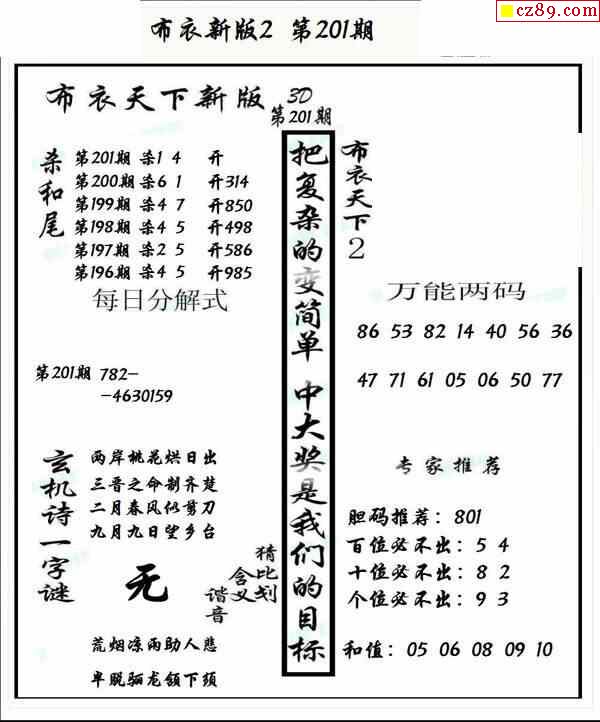 cz89.com
布衣新版2 第201期
布衣天下新版 3D
第201期
杀和尾
第201期 杀1 4 开
第200期 杀6 1 开314
第199期 杀4 7 开850
第198期 杀4 5 开498
第197期 杀2 5 开586
第196期 杀4 5 开985
每日分解式
第201期 782-
-4630159
玄机诗一字谜
两岸桃花烘日出
三晋之命制齐楚
二月春风似剪刀
九月九日望乡台
无
猜比划
含义
谐音
荒烟凉雨助人悲
早脱骊龙颔下须
把复杂的变简单 中大奖是我们的目标
布衣天下2
万能两码
86 53 82 14 40 56 36
47 71 61 05 06 50 77
专家推荐
胆码推荐：801
百位必不出：5 4
十位必不出：8 2
个位必不出：9 3
和值：05 06 08 09 10